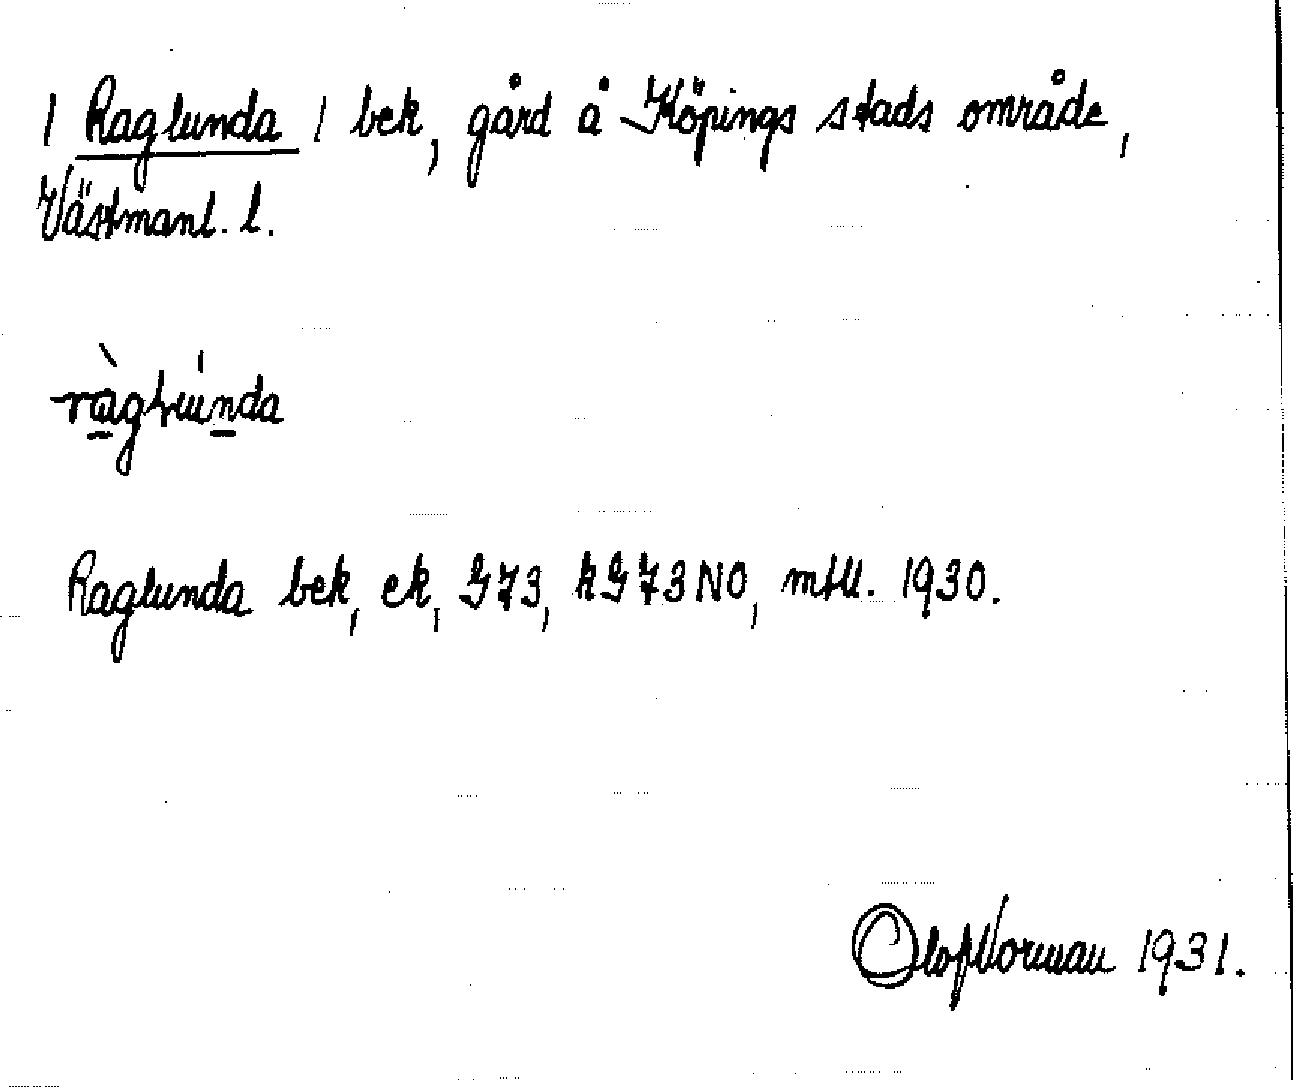 / Raglunda / bek, gård å Köpings stads område,
Västmanl. l.
ràglùnda
Raglunda bek, ek, G73, kG73NO, mtll. 1930.
Olof Norman 1931.